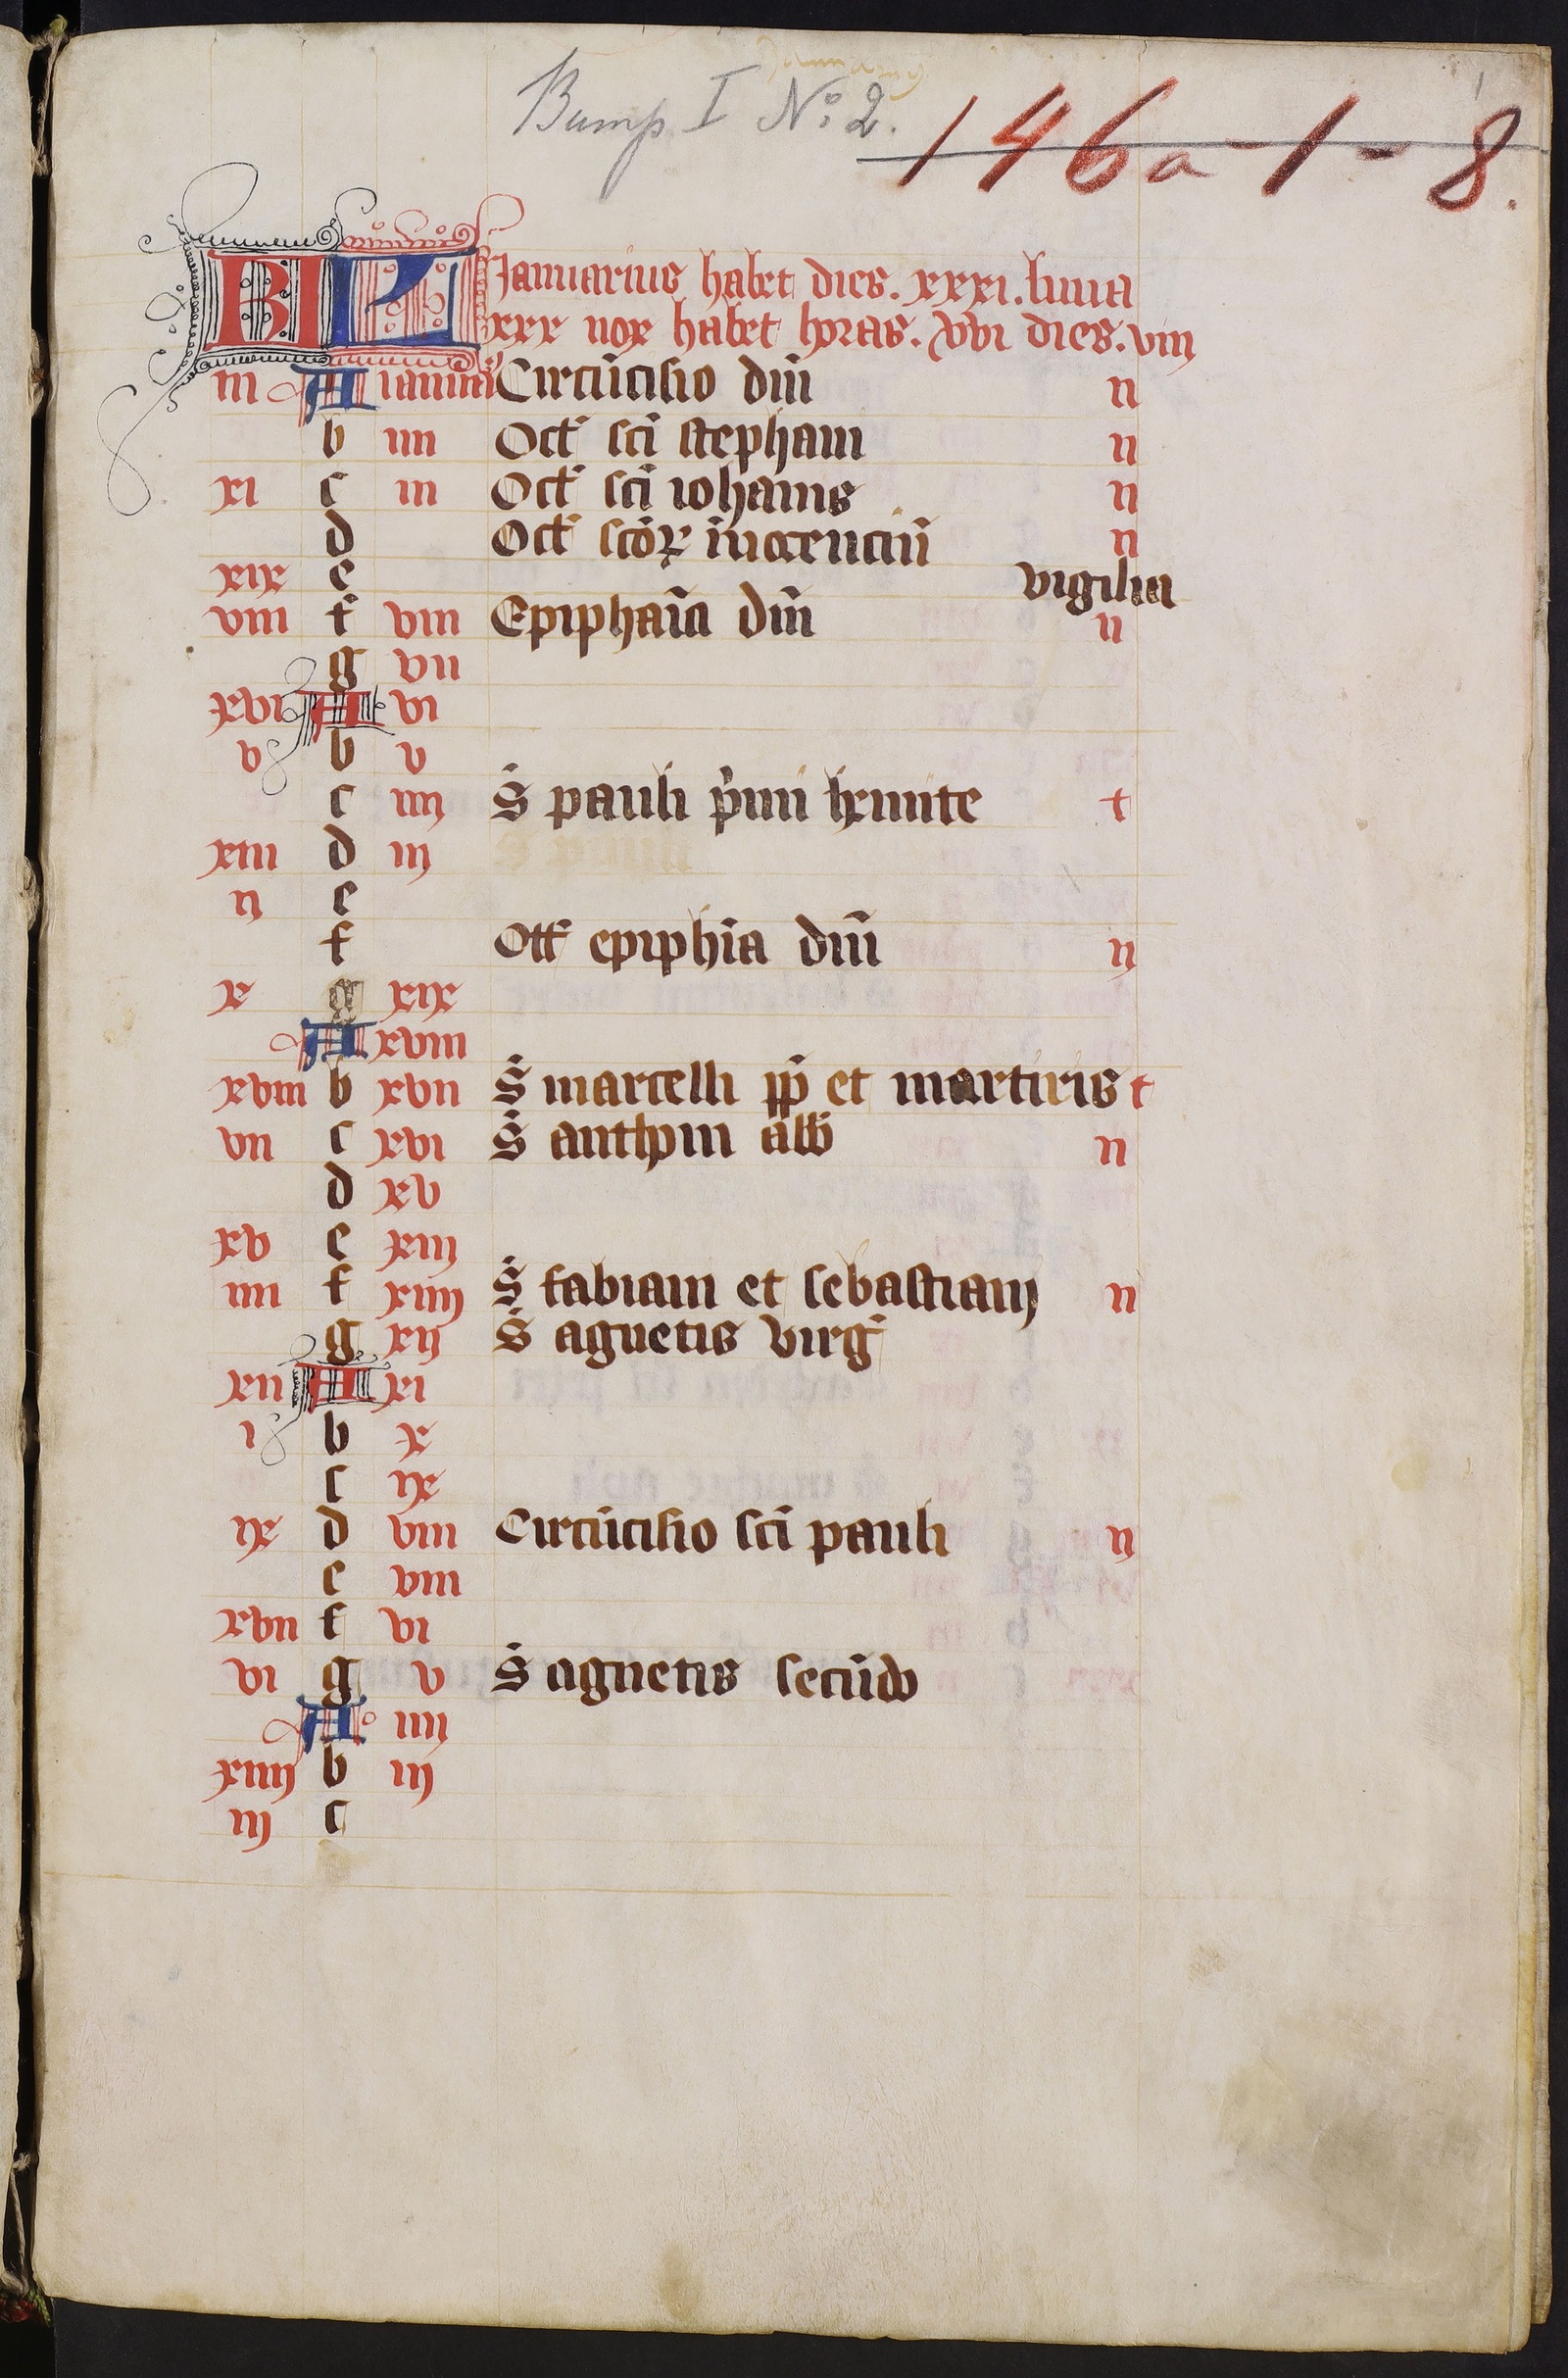 Januarius
Bump I No: 2. 146a-1-8. 1
KL Januarius habet dies. xxxi. luna
xxx nox habet horas. xvi dies. viij
iii A ianuar̄ Circūcisio dn̄i n
b iiii Oct̄ sc̄i stephani n
xi c iii Oct̄ sc̄i iohannis n
d Oct̄ sc̄oꝝ īnocenciū n
xix e vigilia
viii f viii Epiphaīa dn̄i n
g vii
xvi A vi
v b v
c iiij S̄ pauli p̄mi h̓mite t
xiii d iij
ij e
f Ott̄ epiph̄ia dn̄i n
x g xix
A xviii
xviii b xvii S̄ marcelli pp̄ et martiris t
vii c xvi S̄ anthonii abb̄ n
d xv
xv e xiij
iiii f xiiij S̄ fabiani et sebastianj n
g xij S̄ agnetis virḡ
xii A xi
i b x
c ix
ix d viii Circūcisio sc̄i pauli n
e viii
xvii f vi
vi g v S̄ agnetis secūdo
A iiij
xiiij b iij
iij c